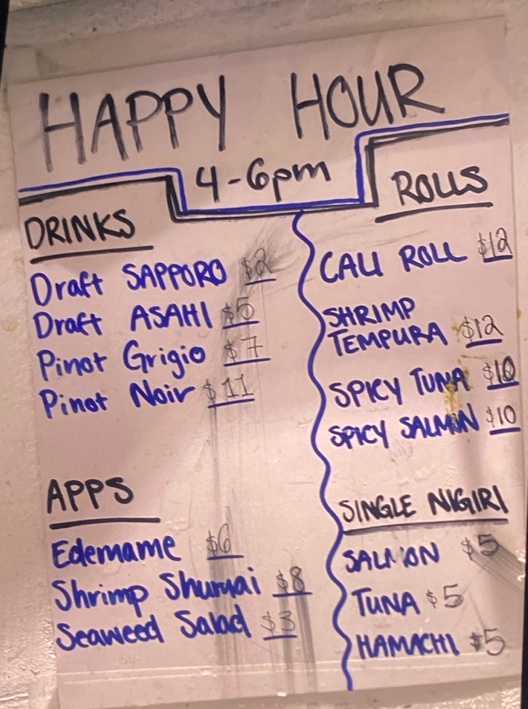 HAPPY HOUR
4-6pm
DRINKS
Draft SAPPORO $2
Draft ASAHI $5
Pinot Grigio $7
Pinot Noir $11
APPS
Edemame $6
Shrimp Shumai $8
Seaweed Salad $3
ROLLS
CALI ROLL $12
SHRIMP
TEMPURA $12
SPICY TUNA $10
SPICY SALMON $10
SINGLE NIGIRI
SALMON $5
TUNA $5
HAMACHI $5